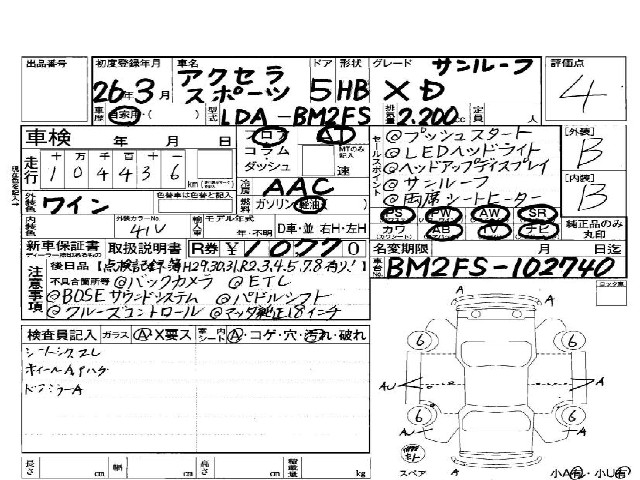 出品番号 初度登録年月 車名 ドア 形状 グレード サンルーフ 評価点
26年3月 アクセラスポーツ 5 HB XD 4
車歴 自家用・( ) 型式 LDA-BM2FS 排気量 2.200cc 定員 人
車検 年 月 日
フロア AT
コラム
ダッシュ MTのみ記入 速
走行 十 万 千 百 十 一
104436 km
冷房 AAC
セールスポイント
@プッシュスタート
@LEDヘッドライト
@ヘッドアップディスプレイ
@サンルーフ
@両席シートヒーター
[外装] B
[内装] B
外装色 ワイン 色替車は色替と記入 燃料 ガソリン・軽油・( )
内装色 外装カラーNo. 41V 輸入車 モデル年式 年・不明 D車・並 右H・左H
PS PW AW SR
カワ AB TV ナビ
純正品のみ丸印
新車保証書 取扱説明書 R券 ¥ 10770
名変期限 月 日迄
注意事項 後日品【点検記録簿H29.30.31.R2.3.4.5.7.8有り!】
不具合箇所等 @バックカメラ @ETC
@BOSEサウンドシステム @パドルシフト
@クルーズコントロール @マツダ純正18インチ
車台No. BM2FS-102740
検査員記入 ガラス A・X要ス 室内シート A・コゲ・穴・汚れ・破れ
ドアミラーA
A
6 6
AU A
A
6 6
AU A
スペア A 小A有・小U有
長さ cm 幅 cm 高さ cm 積載量 kg